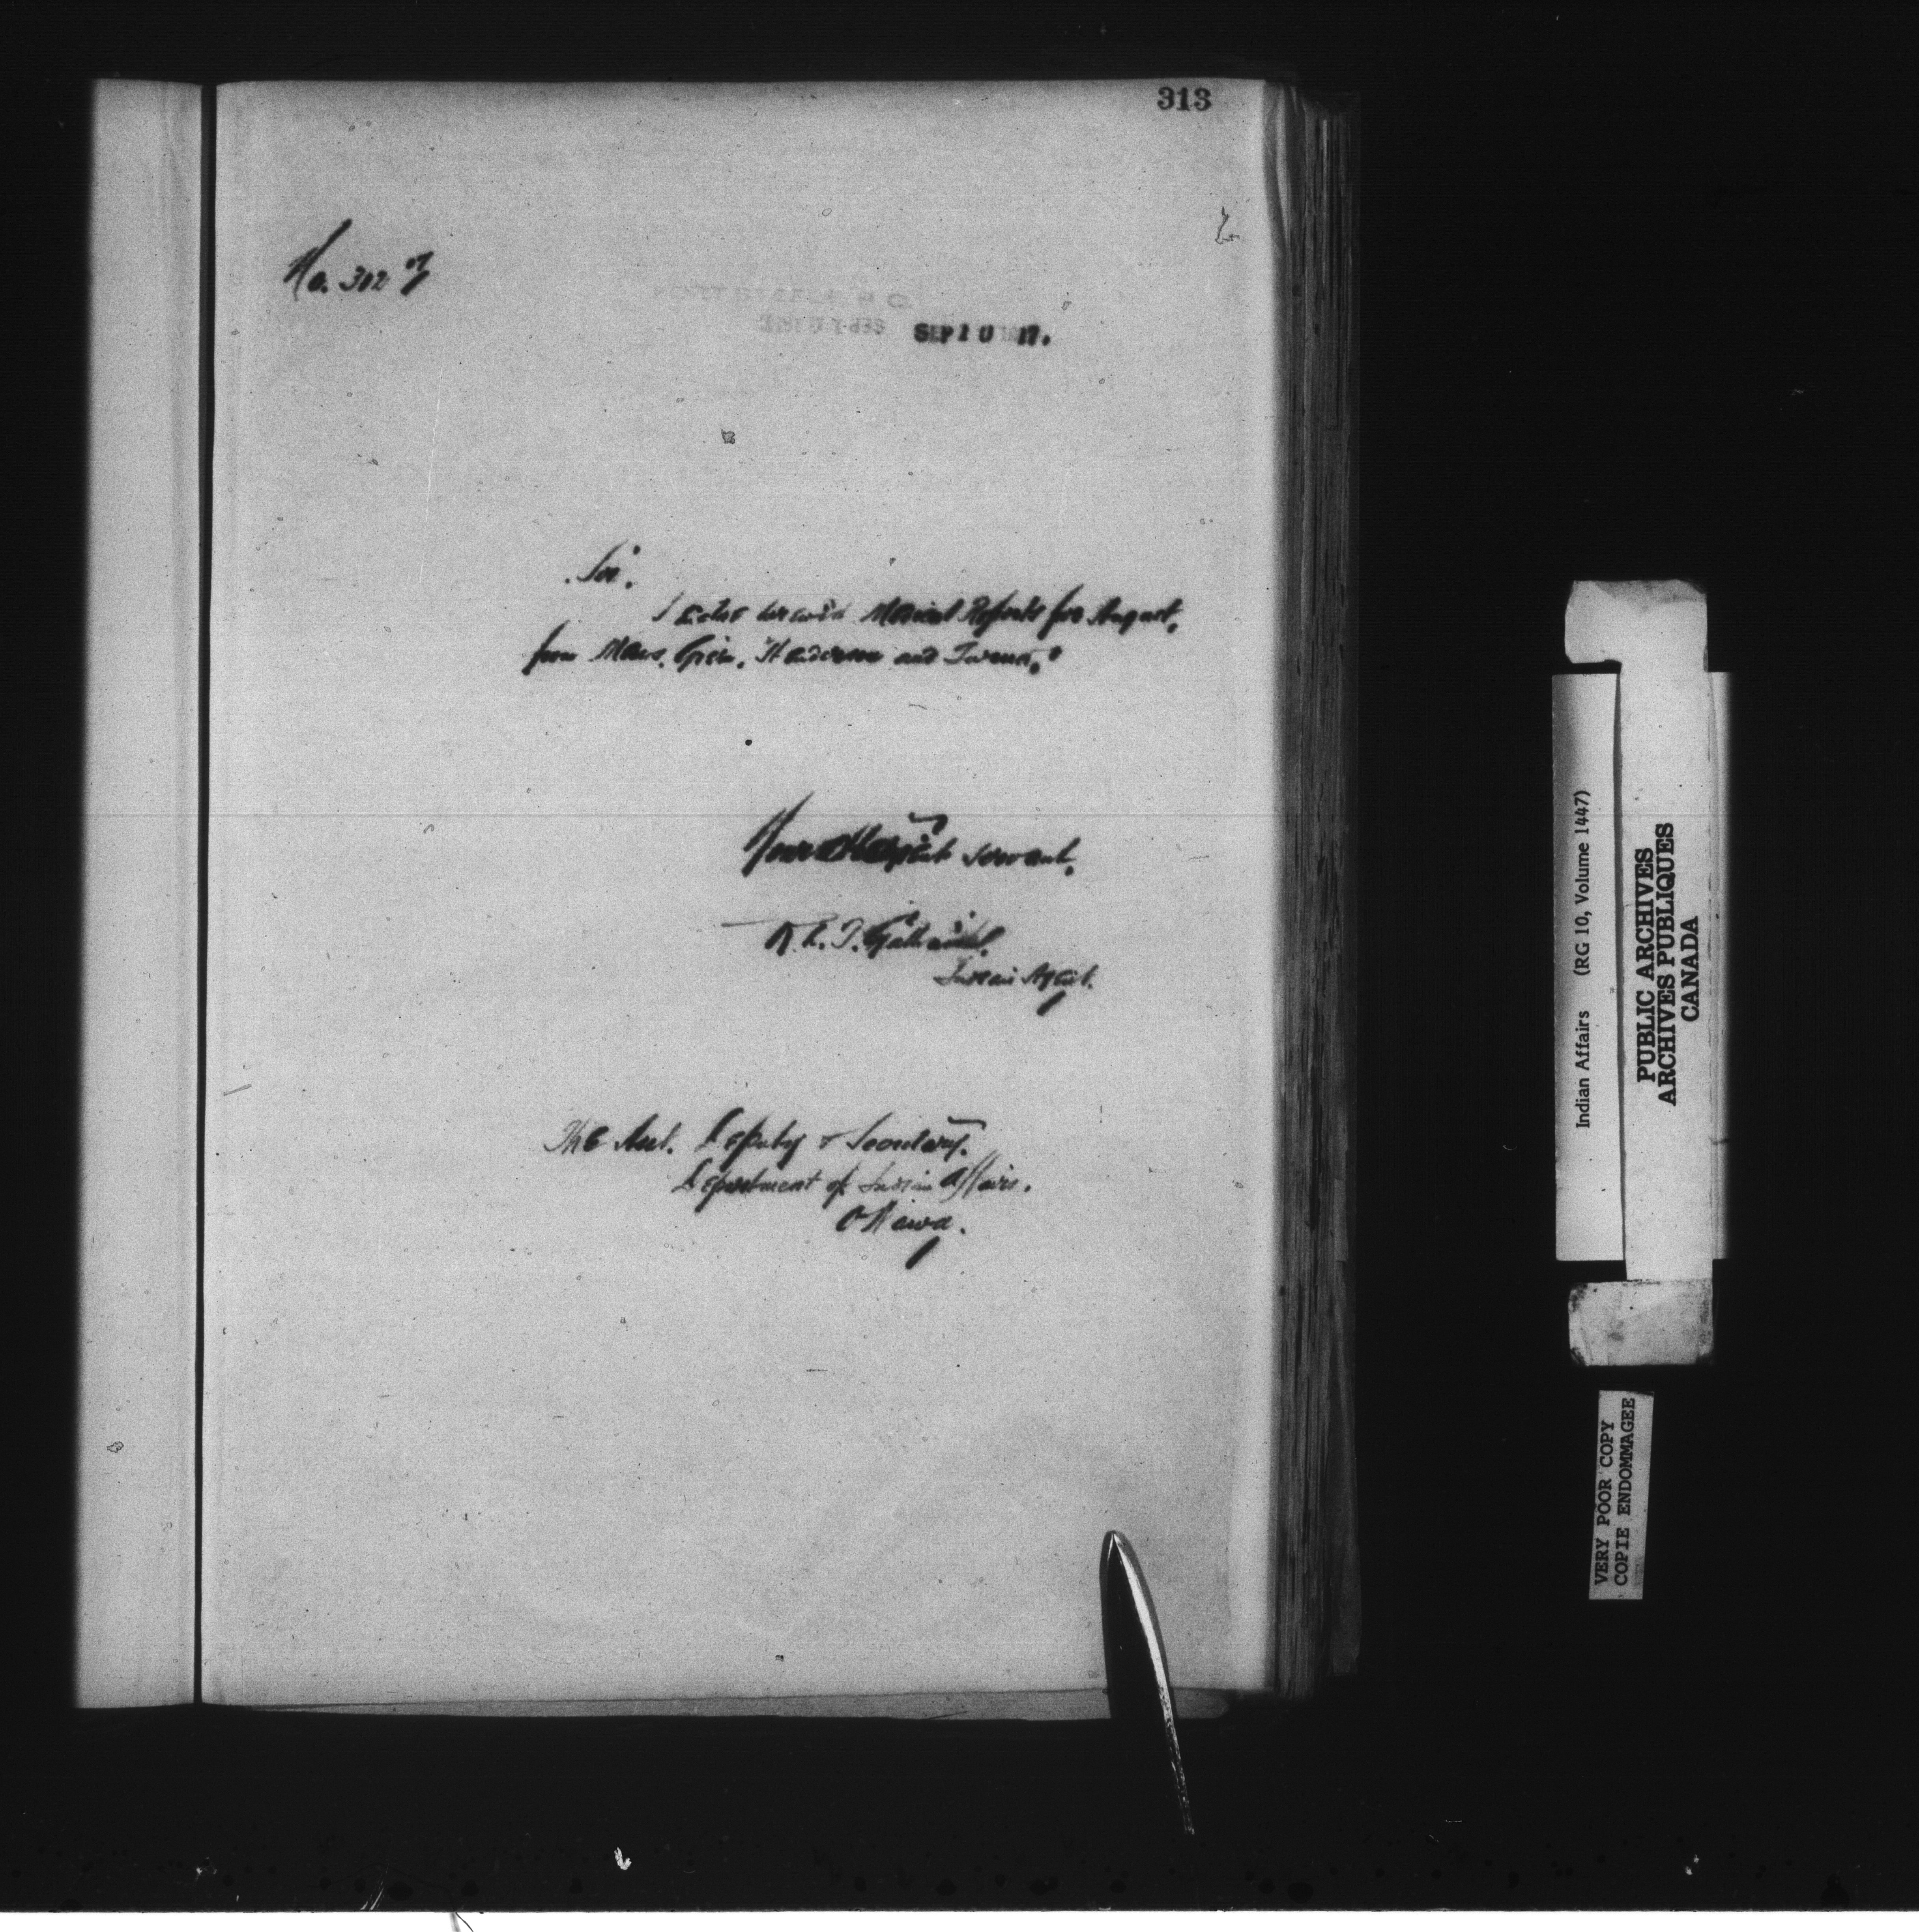 313
No. 302
SEP 10 17.
Sir.
I enclose herewith Medical Reports for August,
from Green, Henderson and
Your obedient servant.
R. L. T. Galbraith.
Indian Agent.
The Asst. Deputy & Secretary.
Department of Indian Affairs.
Ottawa.
Indian Affairs (RG 10, Volume 1447)
PUBLIC ARCHIVES
ARCHIVES PUBLIQUES
CANADA
VERY POOR COPY
COPIE ENDOMMAGEE